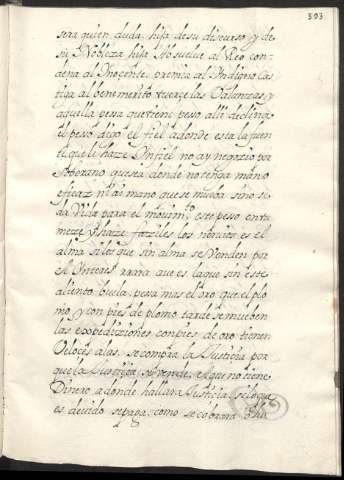 303
sera quien duda hija de su discurso y de
su Nobleza hija Absuelve al Reo con-
dena al Inocente, premia al Indigno cas
tiga al benemerito tuerçe las Valanzas y
aquella pesa que tiene peso alli declina
el peso digo el fiel adonde esta la fuen
te que le haze Infiel no ay negozio tan
soberano que sea donde no tenga mano
eficaz ni ai mano que se mueba sino se
da Vida para el movim.to este peso entu
mece y haze faziles los es el
alma de los que sin alma se Venden por
el Interes rara que es la que sin este
aliento buela, pesa mas el oro que el plo
mo, y con pies de plomo tarde se mueben
las expediziones con pies de oro tienen
Veloces alas, se compra la Justicia por
que la Justizia se vende, el que no tiene
Dinero adonde hallara Justicia, si lo que
es devido se paga como se cobrara